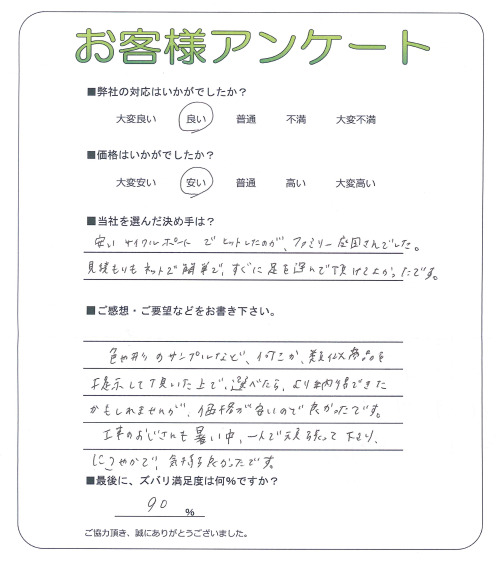 お客様アンケート
■弊社の対応はいかがでしたか？
大変良い 良い 普通 不満 大変不満
■価格はいかがでしたか？
大変安い 安い 普通 高い 大変高い
■当社を選んだ決め手は？
安い サイクルポート でヒットしたのが、ファミリー庭園さんでした。
見積もりもネットで簡単で、すぐに足を運んで頂けてよかったです。
■ご感想・ご要望などをお書き下さい。
色や形のサンプルなど、何こか、類似商品を
提示して頂いた上で、選べたら、より納得できた
かもしれませんが、価格が安いので良かったです。
工事のおじさんも暑い中、一人で頑張って下さり、
にこやかで、気持ち良かったです。
■最後に、ズバリ満足度は何%ですか？
90 %
ご協力頂き、誠にありがとうございました。